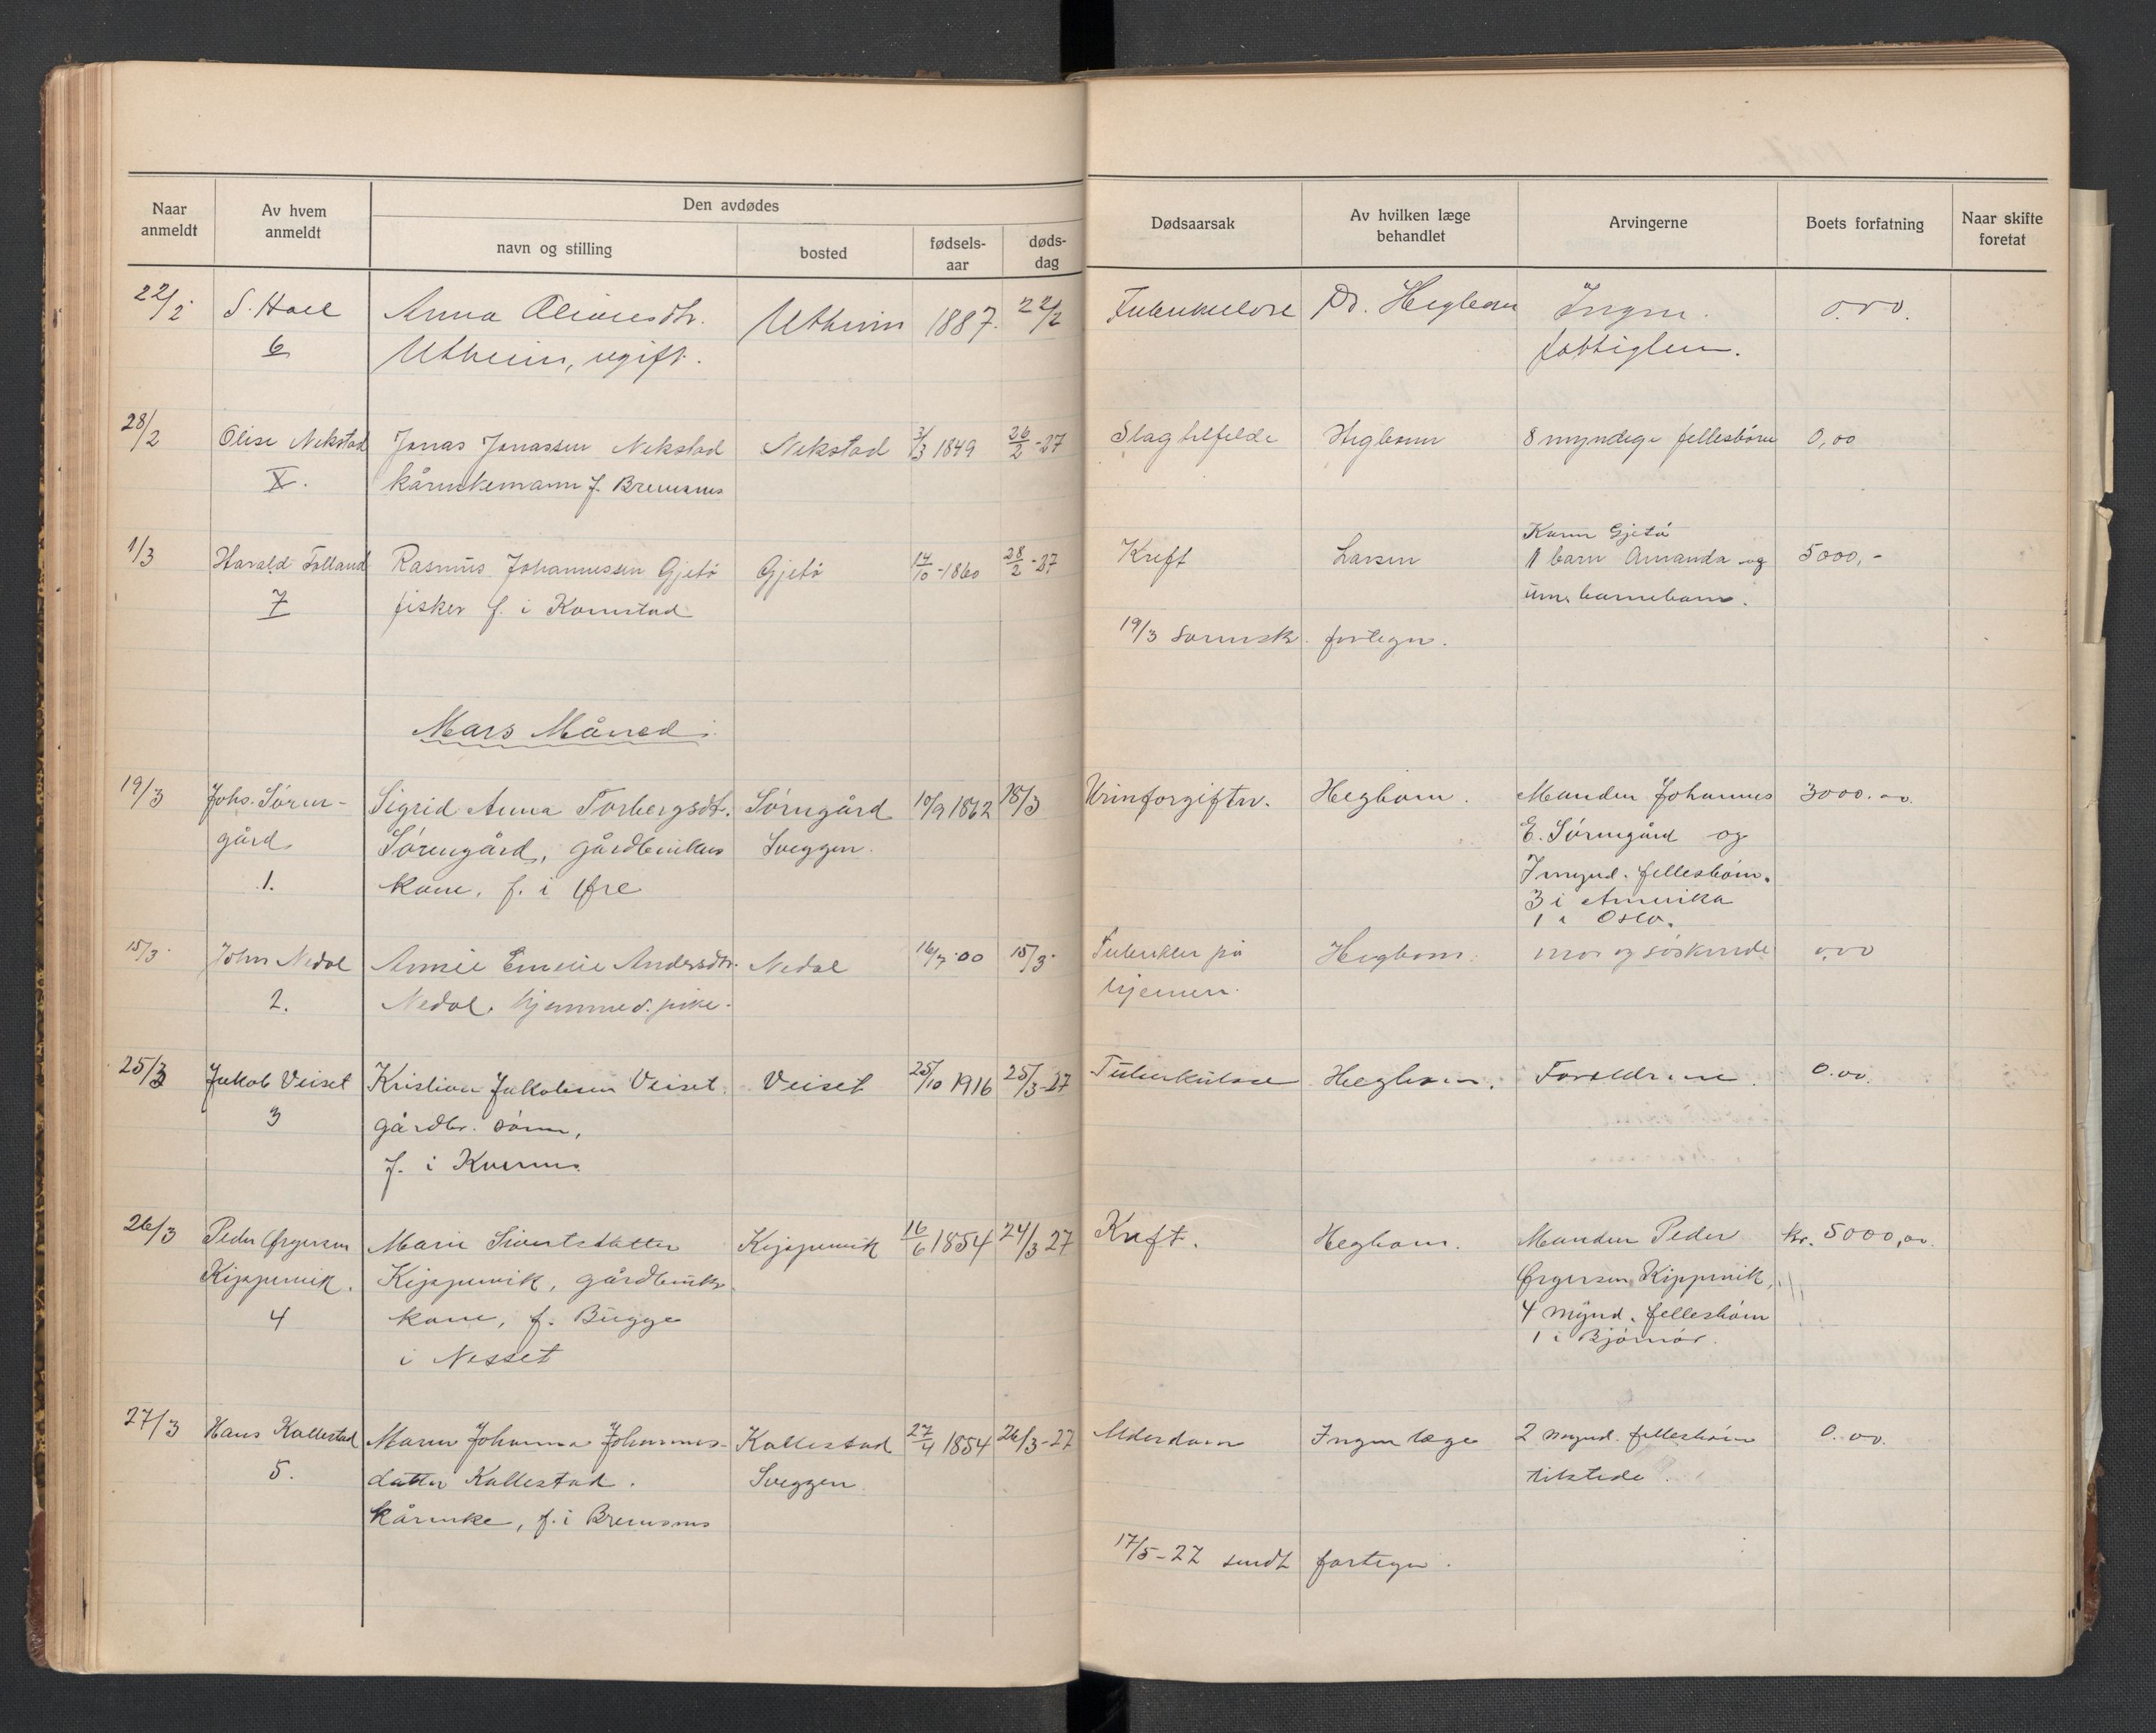 Naar anmeldt | Av hvem anmeldt | Den avdødes navn og stilling | bosted | fødsels-aar | døds-dag | Dødsaarsak | Av hvilken læge behandlet | Arvingerne | Boets forfatning | Naar skifte foretat
22/2 | S. Hoel | Anna Oliviesdtr. | Utheim | 1887. | 22/2 | Tuberkulose | Dr. Hegbom | Ingen. | 0.00.
6 | Utheim, ugift. | fattiglem.
28/2 | Olise Nekstad | Jonas Jonassen Nekstad | Nekstad | 3/3 1849 | 26/2-27 | Slagtilfelde | Hegbom | 8 myndige fellesbørn | 0,00
X. | kårenkemann f. Bremsnes
Karen Gjetø
1/3 | Harald Folland | Rasmus Johannessen Gjetø | Gjetø | 14/10-1860 | 28/2-27 | Kreft | Larsen | 1 barn Amanda og | 5000,-
7 | fisker f. i Kornstad | um. barnebarn.
19/3 | fortegn.
Mars Måned:
19/3 | Johs. Søren- | Sigrid Anna Torbergsdt. | Sørengård | 10/9 1862 | 18/3 | Urinforgiftn. | Hegbom. | Manden Johannes | 3000.00.
gård | Sørengård, gårdbrukers | Sveggen. | E. Sørengård og
1. | kone, f. i Øre | 7 mynd. fellesbørn.
3 i Amerika
1 i Oslo.
15/3. | John Nedal | Annie Emelie Andersdtr. | Nedal | 16/7 00 | 15/3. | Tuberkler på | Hegbom. | mor og søskende | 0,00
2. | Nedal. hjemmev. pike. | hjernen.
25/3 | Jakob Veiset | Kristian Jakobsen Veiset. | Veiset | 25/10 1916 | 25/3-27 | Tuberkulose | Hegbom. | Foreldrene. | 0.00.
3 | gårdbr. sønn,
f. i Kvernes.
26/3 | Peder Ørgersen | Marie Sivertsdatter | Kjøpenvik | 16/6 1854 | 24/3 27 | Kreft. | Hegbom. | Manden Peder | kr. 5000,00.
. | gårdbruker | Ørgersen
4 | kone, f. Bugge | 4 mynd. fellesbørn
i Nesset | 1 i Bjørnør.
27/3 | Hans Kallestad | Maren Johanna Johannes- | Kallestad | 27/4 1854 | 26/3-27 | Alderdom | Ingen læge | 2 mynd. fellesbørn | 0.00.
5. | datter Kallestad. | Sveggen | tilstede.
kårenke, f. i Bremsnes
17/5-27 sendt fortegn.